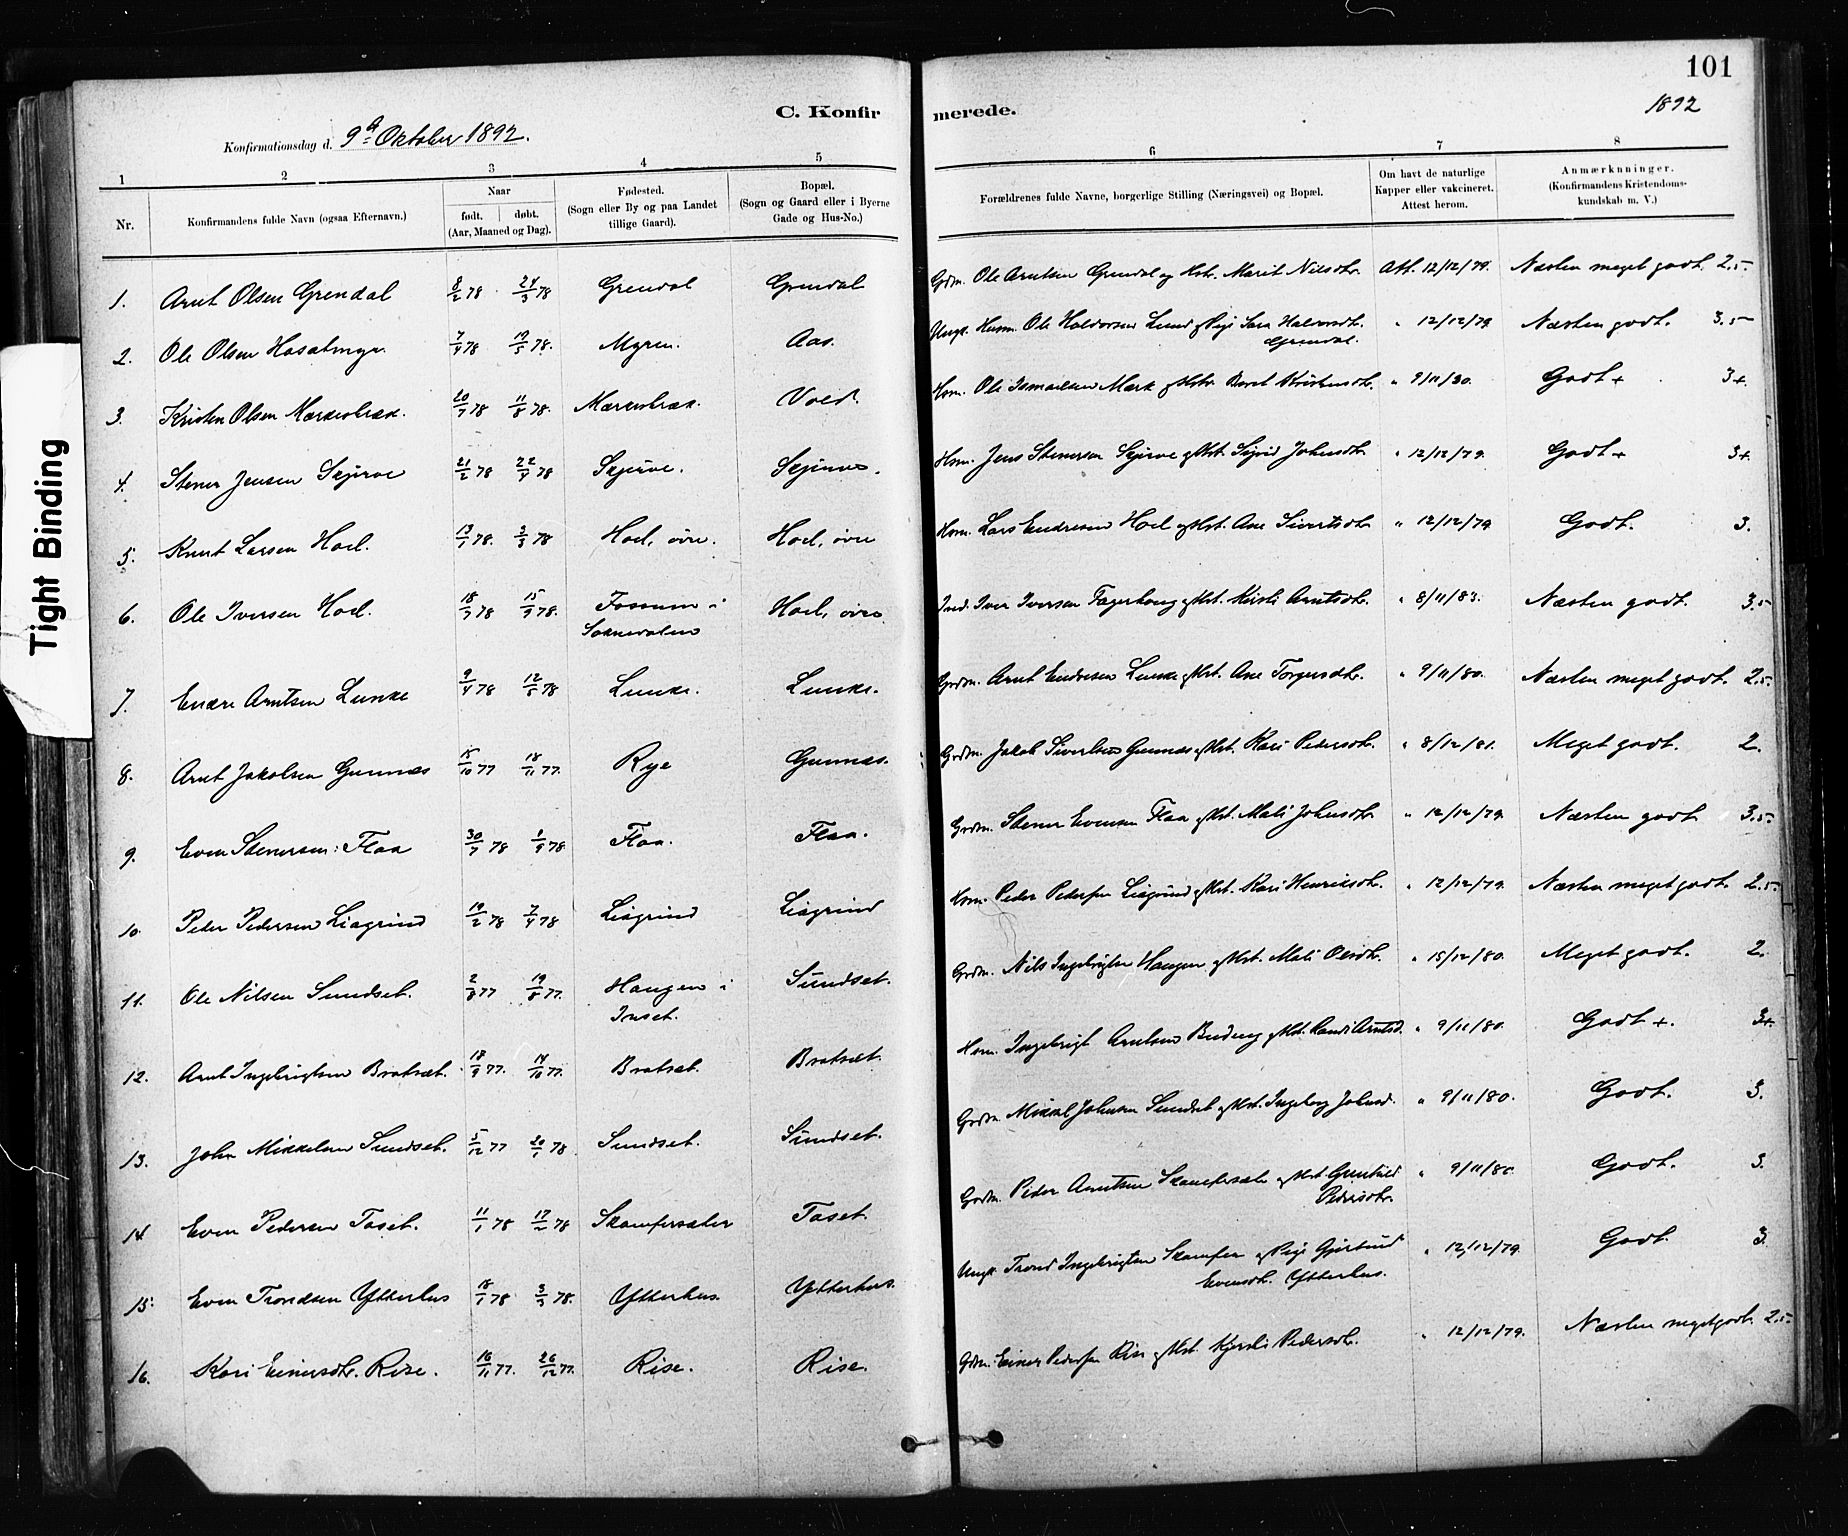 101
C. Konfirmerede.
1892
Konfirmationsdag d. 9de Oktober 1892.
1 2 3 4 5 6 7 8
Nr.
Konfirmandens fulde Navn (ogsaa Efternavn.)
Naar
født. døbt.
(Aar, Maaned og Dag).
Fødested.
(Sogn eller By og paa Landet
tillige Gaard).
Bopæl.
(Sogn og Gaard eller i Byerne
Gade og Hus-No.)
Forældrenes fulde Navne, borgerlige Stilling (Næringsvei) og Bopæl.
Om havt de naturlige
Kapper eller vakcineret.
Attest herom.
Anmærkninger.
(Konfirmandens Kristendoms-
kundskab m. V.)
1. Arnt Olsen Grendal 8/2 78 24/3 78 Grendal Grendal Grdm. Ole Arntsen Grendal og Kst. Marit Nilsdtr. Att. 12/12/79. Næsten meget godt. 2.5.
2. Ole Olsen 7/4 78 19/5 78. Myren. Aas. Ungk. Husm. Ole Haldorsen Lund og Pige Sara Halvorsdtr. " 12/12/79 Næsten godt. 3.5
Grendal.
3. Kristen Olsen 20/7 78 11/8 78. Vold. Hsm. Ole Ismaelsen Mærk og Kst. Beret " 9/11/80. Godt + 3+.
4. Stener Jensen Skjerve 21/2 78 22/4 78 Skjerve. Skjerve. Hsm. Jens Stenersen Skjerve og Kst. Sigrid Johnsdtr. " 12/12/79. Godt + 3+.
5. Knut Larsen Hoel. 13/1 78. 3/3 78 Hoel, øvre. Hoel, øvre Hsm. Lars Endresen Hoel og Kst. Ane Sivertsdtr. " 12/12/79 Godt. 3.
6. Ole Iversen Hoel. 18/7 78 15/9 78. Fossum i Hoel, øvre Ind. Iver Iversen Fagerhoug og Kst. Kirsti Arntsdtr. " 8/11/83. Næsten godt. 3.5
Soknedalen
7. Endre Arntsen Lunke 9/4 78 12/5 78 Lunke. Lunke. Grdm. Arnt Endresen Lunke og Kst. Ane Torgersdtr. " 9/11/80. Næsten meget godt. 2.5.
8. Arnt Jakobsen Gunnæs 15/10 77 18/11 77. Rye Gunnæs. Grdm. Jakob Sivertsen Gunnæs og Kst. Kari Pedersdtr. " 8/12/81. Meget godt. 2.
9. Even Stenersen Flaa 30/7 78 1/9 78 Flaa. Flaa. Grdm. Stener Evensen Flaa og Kst. Mali Johnsdtr. " 12/12/79. Næsten godt 3.5.
10. Peder Pedersen Liagrind 19/2 78 7/4 78 Liagrind Liagrind Hsm. Peder Pedersen Liagrind og Kst. Kari Henriksdtr. " 12/12/79. Næsten meget godt. 2.5.
11. Ole Nilsen Sundset. 2/8 77 19/8 77. Haugen i Sundset. Grdm. Nils Ingebrigtsen Haugen og Kst. Mali Olsdtr. " 15/12/80. Meget godt. 2.
Inset.
12. Arnt Ingebrigtsen Bratset. 17/9 77. 14/10 77. Bratset. Bratset. Hsm. Ingebrigt Arntsen og Kst. Randi Arntsd. " 9/11/80. Godt +. 3+.
13. John Mikkelsen Sundset. 5/12 77 20/1 78 Sundset. Sundset. Grdm. Mikkel Johnsen Sundset og Kst. Ingeborg Johnsd. " 9/11/80. Godt. 3.
14. Even Pedersen Taset. 11/1 78 17/2 78 Skamfersæter Taset. Grdm. Peder Arntsen Skamfersæter og Kst. Gunhild " 9/11/80. Godt. 3.
Pedersdtr.
15. Even Trondsen Ytterhus 18/1 78 3/3 78. Ytterhus. Ytterhus. Ungk. Trond Ingebrigtsen Skamfer og Pige Gjertrud " 12/12/79. Godt. 3
Evensdtr. Ytterhus.
16. Kari Einersdtr. Rise. 16/11 77. 26/12 77. Rise. Rise. Grdm. Einer Pedersen Rise og Kst. Kjersti Pedersdtr. " 12/12/79. Næsten meget godt. 2.5.
Tight Binding